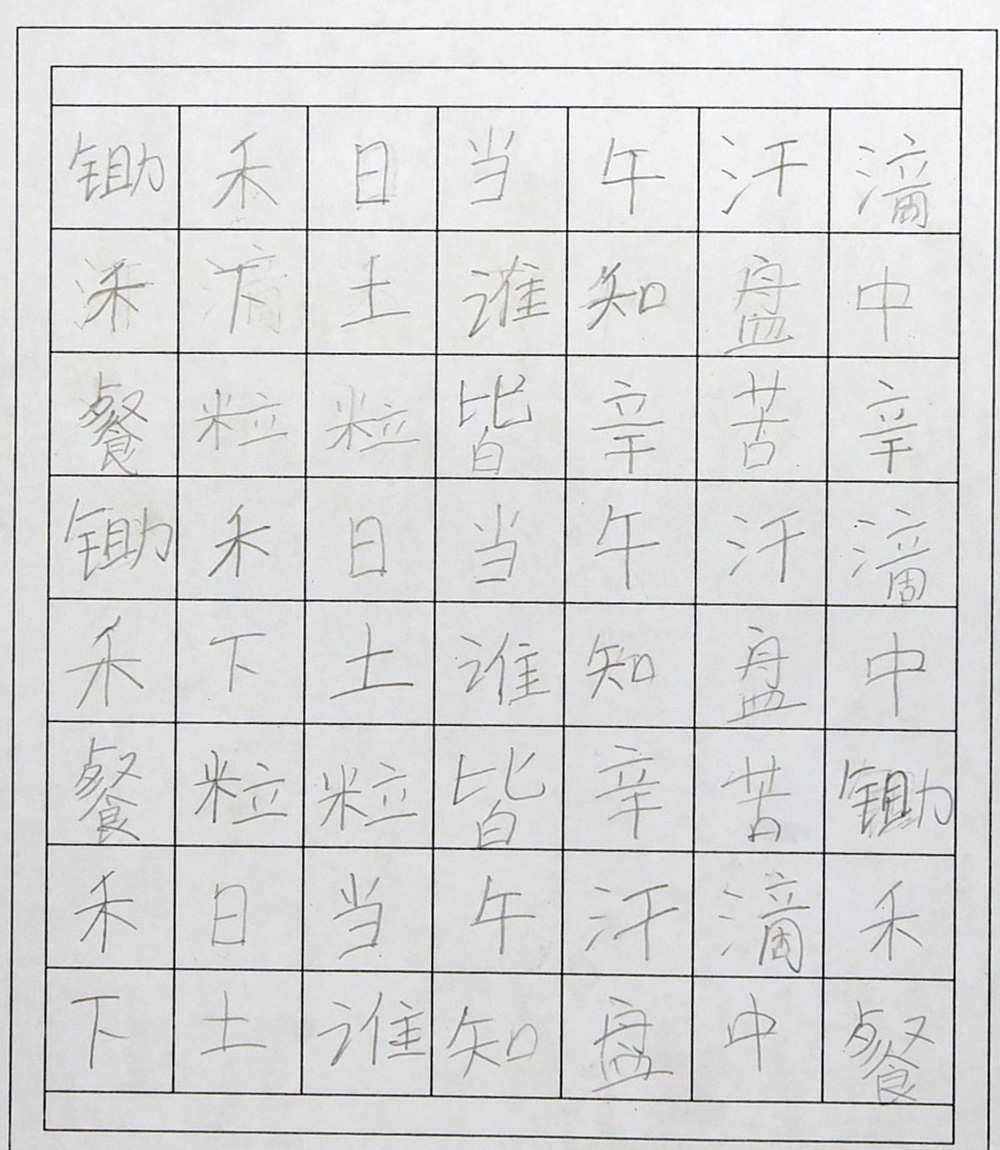 锄禾日当午汗滴
禾下土谁知盘中
餐粒粒皆辛苦辛
锄禾日当午汗滴
禾下土谁知盘中
餐粒粒皆辛苦锄
禾日当午汗滴禾
下土谁知盘中餐